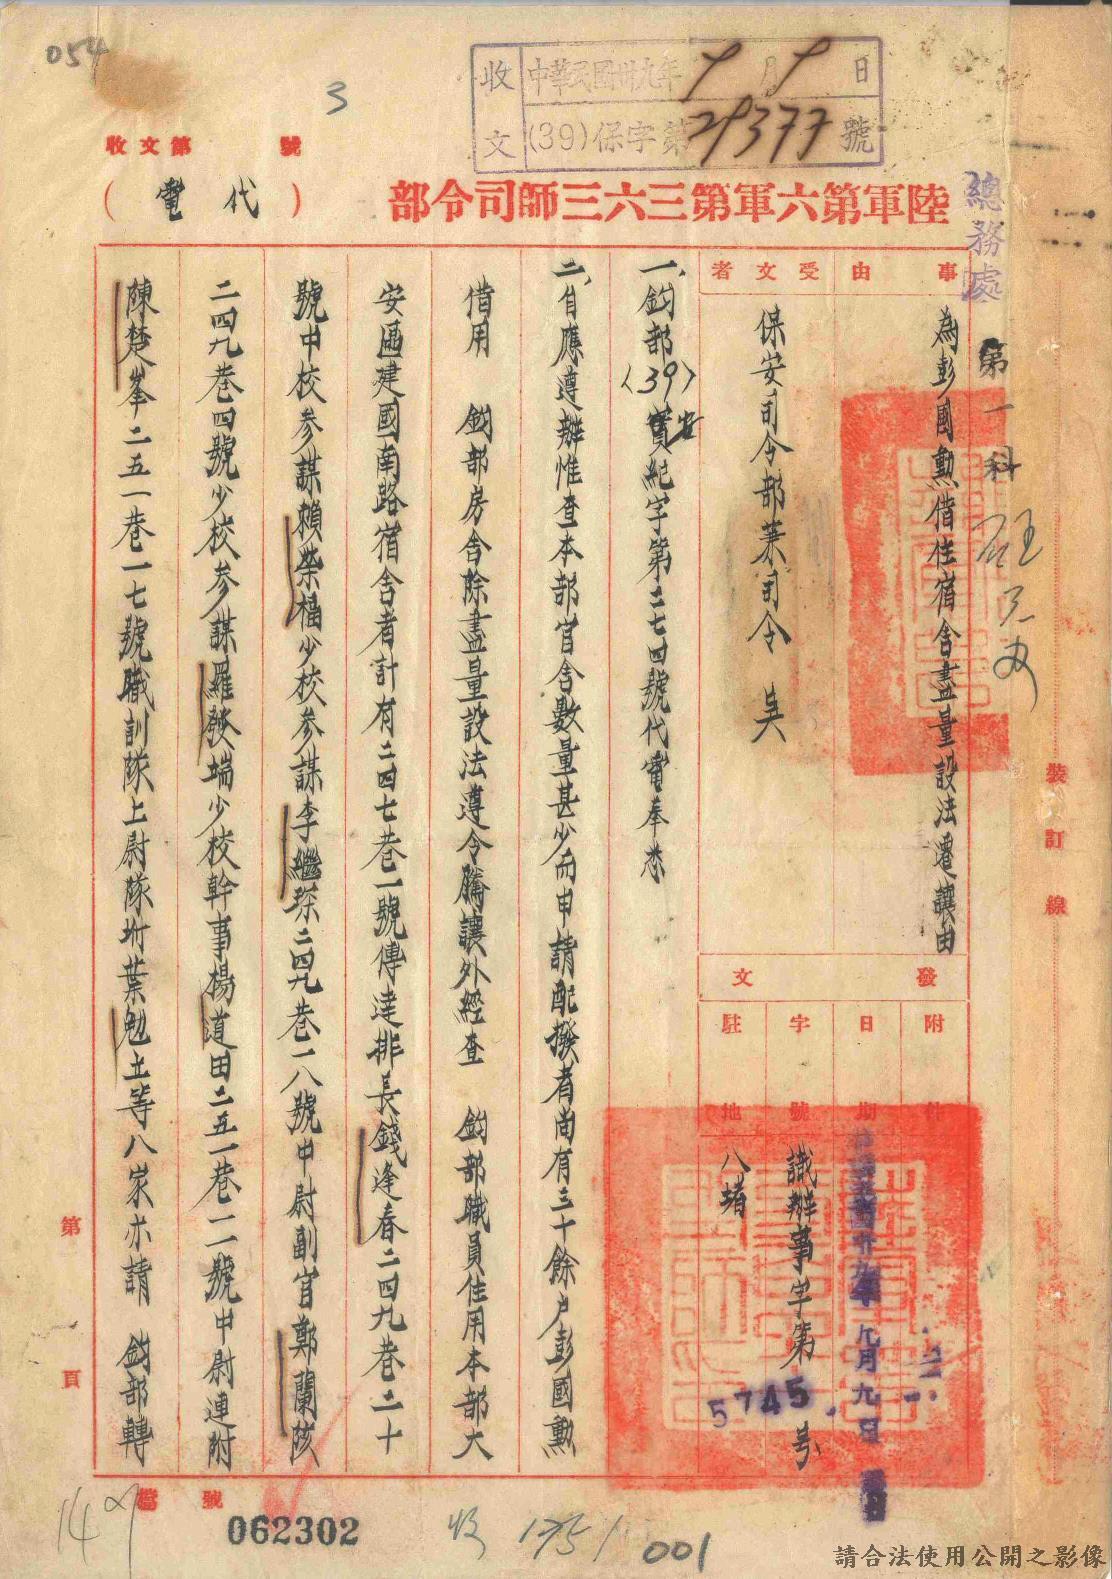 054
3
收 中華民國卅九年9月9日
文 (39)保字第29377號
收文第 號
陸軍第六軍第三六三師司令部
(代電)
總務處
第一科
事由
為彭國勲借住宿舍盡量設法遷讓由
受文者
保安司令部兼司令 吳
發文
附件
日期
中華民國卅九年九月九日
字號
識辦事字第5745號
駐地
八堵
一、鈞部(39)安實紀字第二七四號代電奉悉
二、自應遵辦惟查本部官舍數量甚少而申請配撥者尚有三十餘户彭國勲
借用 鈞部房舍除盡量設法遵令騰讓外經查 鈞部職員住用本部大
安區建國南路宿舍者計有二四七巷一號傳達排長錢逢春二四九巷二十
號中校参謀賴榮福少校参謀李繼琛二四九巷一八號中尉副官鄭蘭陔
二四九巷四號少校参謀羅發端少校幹事楊道田二五一巷二一號中尉連附
陳楚峯二五一巷一七號職訓隊上尉隊附葉勉立等八家亦請 鈞部轉
裝訂線
第一頁
檔號
147
062302
收 1751
001
請合法使用公開之影像